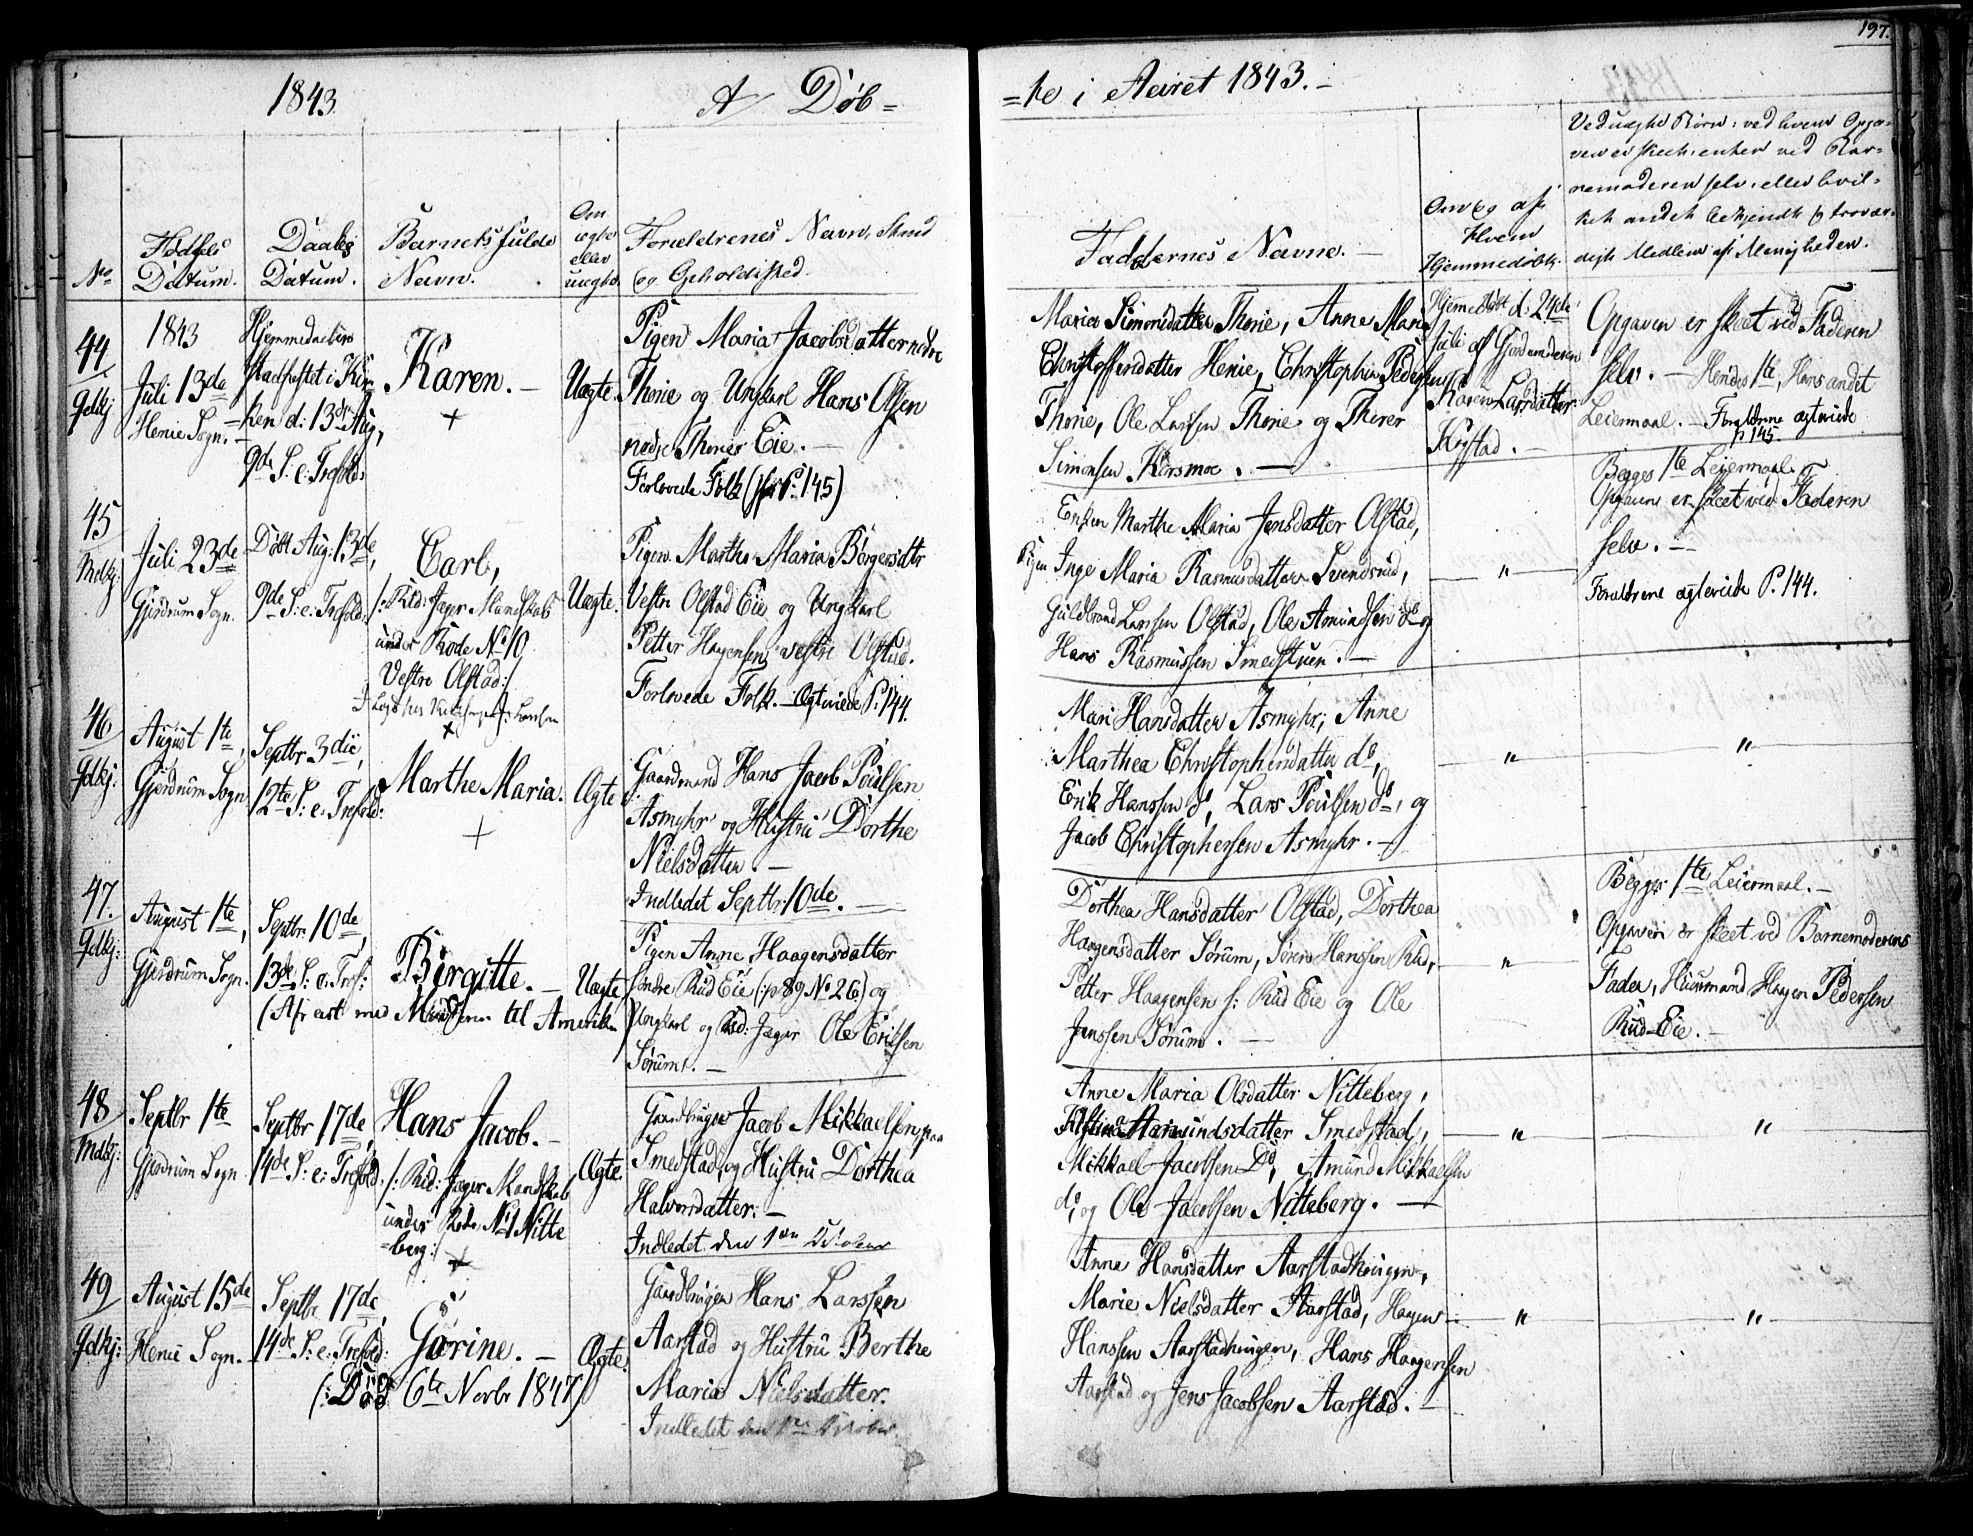 197.
1843
A/ Døb=
=te i Aaret 1843.-
No
Fødsels
Datum.
Daabs
Datum.
Barnets fulde
Navn.
Om
ægte
eller
uægte.
Forældrenes Navn, Stand
og Opholdssted.
Faddernes Navne.
Om og af
Hvem
Hjemmedøbt.
Ved uægte Børn: ved hvem Opga=
ven er skeet, enten ved Bar=
nemoderen selv, eller hvil=
ket andet bekjendt og trovær=
digt Medlem af Menigheden.
44
Qdkj:
1843
Juli 13de
Henie Sogn.
Hjemmedaaben
stadfæstet i Kir=
ken d: 13de Aug,
9de S: e: Trefold:
Karen. —
+
Uægte.
Pigen Maria Jacobsdatter nedre
Thorie og Ungkarl Hans Olsen
nedre Thories Eie. —
Forlovede Folk (see P: 145)
Maria Simonsdatter Thorie, Anne Maria
Christoffersdatter Henie, Christopher Pedersen
Thorie, Ole Larsen Thorie og Therer
Simonsen Korsmoe. —
Hjemedøbt d: 24de
Juli af Gjordemoderen
Karen Larsdatter
Kogstad. —
Opgaven er skeet ved Faderen
selv. — Hendes 1te, Hans andet
Leiermaal. — Forældrene ægteviede
P 145
45
Mdkj:
Juli 23de
Gjerdrum Sogn.
Døbt Aug: 13de,
9de S: e: Trefold:
Carl,
/: Rid: Jæger Mandskab
under Rode No 10
Vestre Olstad:/
Uægte.
Pigen Marthe Maria Børgersdtr
Vestre Olstad Eie og Ungkarl
Petter Haagensen vestre Olstad.
Forlovede Folk. — Ægteviede P. 144.
Enken Marthe Maria Jensdatter Olstad,
Pigen Inge Maria Rasmusdatter Svendsrud,
Guldbrand Larssen Olstad, Ole Amundsen do og
Hans Rasmussen Smedstuen. —
— " —
Begges 1te Leiermaal.
Opgaven er skeet ved Faderen
selv. —
Forældrene ægteviede P. 144.
46
Qdkj:
August 1te,
Gjerdrum Sogn
Septbr 3die,
12te S: e: Trefold:
Marthe Maria.
+
Ægte
Gaardmand Hans Jacob Poulsen
Asmyhr og Hustru Dorthe
Nielsdatter. —
Indledet Septbr 10de. —
Mari Hansdatter Asmyhr, Anne
Marthea Christophersdatter do,
Erik Hanssen do, Lars Poulsen do, og
Jacob Christophersen Asmyhr. —
— " —
— " —
47.
Qdkj:
August 1te,
Gjerdrum Sogn.
Septbr. 10de,
13de S: e: Tref:
Birgitte. —
Uægte
(Afreist med Moderen til Amerika)
Pigen Anne Haagensdatter
søndre Rud Eie (: p 89 No 26) og
Ungkarl og Rid: Jæger Ole Eriksen
Sørum. —
Dorthea Hansdatter Olstad, Dorthea
Haagensdatter Sørum, Søren Hanssen Rud,
Petter Haagensen s: Rud Eie og Ole
Jenssen Sørum. —
— " —
Begges 1te Leiermaal. —
Opgaven er skeet ved Barnemoderens
Fader, Huusmand Haagen Pedersen
Rud-Eie. —
48
Mdkj:
Septbr 1te
Gjerdrum Sogn
Septbr 17de,
14de S: e: Trefold.
Hans Jacob. —
/: Rid: Jæger Mandskab
under Rode No 1 Nitte
=berg:/
+
Ægte.
Gaardbruger Jacob Mikkaelsen paa
Smedstad, og Hustru Dorthea
Halvorsdatter. —
Indledet den 1ste October
Anne Maria Olsdatter Nitteberg,
Kistine Aamundsdatter Smedstad,
Mikkael Jacobsen Do, Amund Mikkaelsen
do, og Ole Jacobsen Nitteberg. —
— " —
— " —
49
Qdkj:
August 15de
Henie Sogn. —
Septbr 17de,
14de S: e: Trefold:
Gorine. —
(: Død 6te Novbr 1847)
Ægte.
Gaardbruger Hans Larssen
Aarstad og Hustru Berthe
Maria Nielsdatter.
Indledet den 1ste October.
Anne Hansdatter Aarstadhougen,
Marie Nielsdatter Aarstad, Haagen
Hanssen Aarstadhougen, Hans Haagensen
Aarstad og Jens Jacobsen Aarstad. —
— " —
— " —